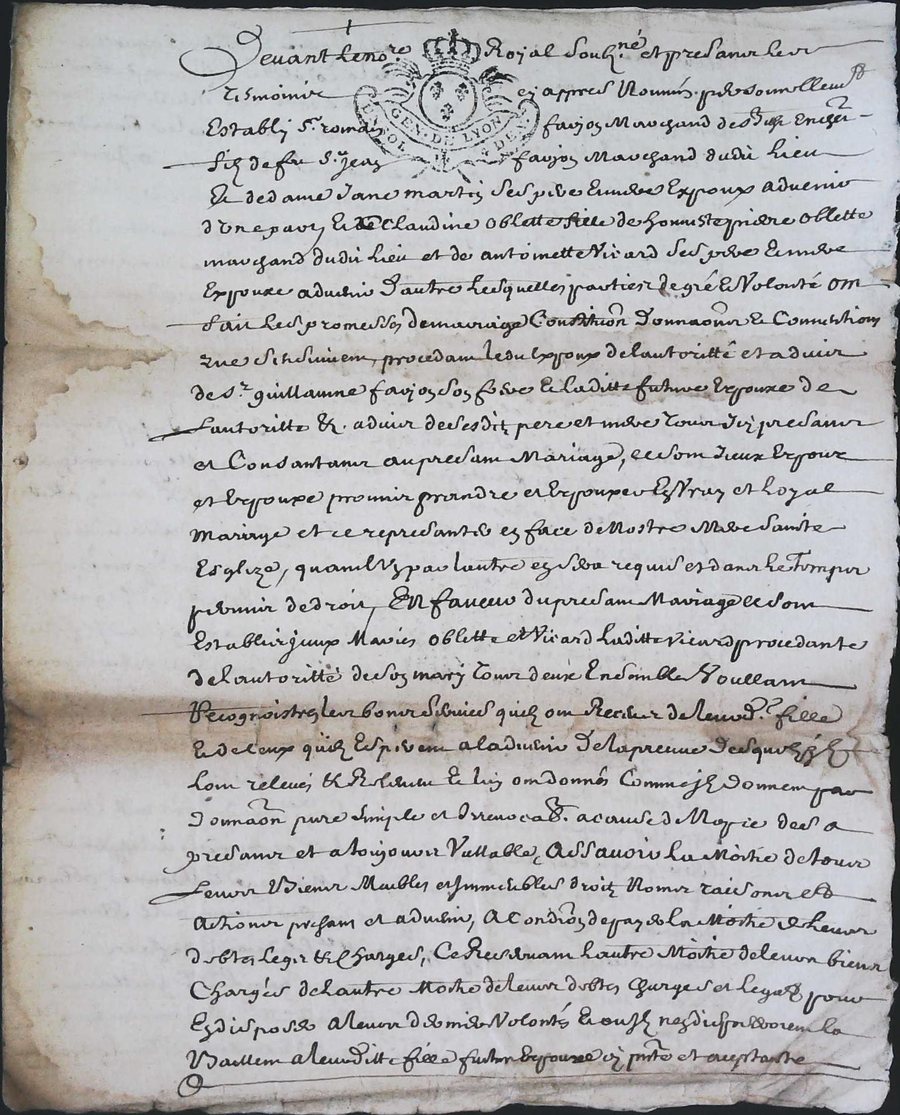 Devant le no.re Royal soub.né et presans les
tesmoins cy appres Nommés personnellem.t
Estably S.r romain favjon Marchand de
GEN. DE LYON
fils de feu S.r jean favjon Marchand dudit Lieu
Et de dame Jane martin ses pere Et mere Expoux advenir
d'une part Et Claudine Oblette fille de honneste pierre Oblette
marchand dudit Lieu et de antoinette Vicard ses pere Et mere
Expouxe advenir d'autre Lesquelles parties de gré Et Volonté ont
fait Les promesses de mariage Constitu.on Donna.ons Et Conventions
que sensuivent, procedant ledit Expoux de lautoritté et advis
de S.r guillaume favjon son frere Et laditte future Expouxe de
Lautoritté &. advis de sesdits pere et mere tous Icy presans
et Consantans au presant Mariage, se sont Iceux Expoux
et Expouxe promis prandre et Expouxer En Vray et Loyal
Mariage et ce representer en face de Nostre Mere sainte
Esglize, quant L'un par lautre en sera requis et dans Le Temps
permis de droit, En faveur du presant Mariage se sont
Establis jceux Mariés Oblette et Vicard Laditte Vicard procedante
de lautoritté de son mary tous deux Ensemble Voullant
Recognoistre les bons services quils ont Receus de leurd.e fille
Et de Ceux quils Esperent a ladvenir De la preuve Desquels jls
Lont relevée & Releve Et luy ont donnés Comme jls donnent par
Donna.on pure simple et Irrevocab. a cause de Nopce des a
presans et a toujours Vallable, Assavoir La Moitié de tous
Leurs Biens Meubles et Immeubles droits Noms raisons et
Actions presans et advenir, A Condi.on de payer la Moitié de Leurs
debtes Legs & Charges, Ce Reservant Lautre Moitié de leurs biens
Chargés de Lautre Moitié de leurs debtes Charges et Legats pour
En disposer a leurs derniere Volontés Et ou jls nen disposeroient la
Baillent a leurditte fille future Expouxe cy pnte et aceptante